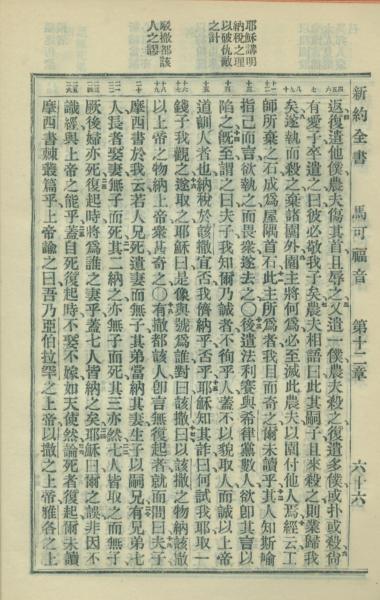 新約全書　馬可福音　第十二章　六十六
耶穌講明
納稅之理
以破仇敵
之計
駁撒都該
人之謬
返復遣他僕農夫傷其首且辱之又遣一僕農夫殺之復遣多僕或扑或殺尚
有愛子卒遣之曰彼必敬我子矣農夫相語曰此其嗣子且來殺之則業歸我
矣遂執而殺之棄諸園外園主將何爲必至滅此農夫以園付他人焉經云工
師所棄之石成爲屋隅首石此主所爲者我目而奇之爾未讀乎其人知斯喻
指己而言欲執之而畏衆遂去之〇後遣法利賽與希律黨數人欲卽其言以
陷之既至謂之曰夫子我知爾乃誠者不徇乎人蓋不以貌取人而誠以上帝
道訓人者也納稅於該撒宜否我儕納乎否乎耶穌知其詐曰何試我耶取一
錢予我觀之遂取之耶穌曰是像與號爲誰對曰該撒曰以該撒之物納該撒
以上帝之物納上帝衆甚奇之〇有撒都該人卽言無復起者就而問曰夫子
摩西書於我云若人兄死遺妻而無子其弟當納其妻生子以嗣兄有兄弟七
人長者娶妻無子而死其二納之亦無子而死其三亦然七人皆取之而無子
厥後婦亦死復起時將爲誰之妻乎蓋七人皆納之矣耶穌曰爾之誤非因不
識經與上帝之能乎蓋自死復起時不娶不嫁如天使然論死者復起爾未讀
摩西書棘叢篇乎上帝諭之曰吾乃亞伯拉罕之上帝以撒之上帝雅各之上